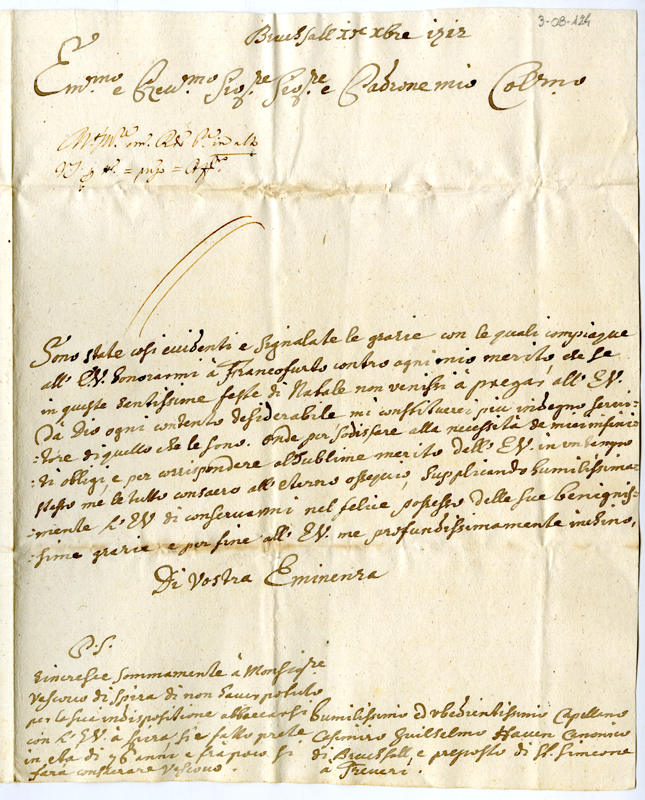 3-08-124
Bruchsall xbre 1712
Em.mo e Rev.mo Sig.re Sig.re e Padrone mio Col.mo
Sono state cosi evidenti e signalate le grazie con le quali compiaque
all' EV. honorarmi à Francofurto contro ogni mio merito, che se
in queste santissime feste di Natale non venissi à pregar all' EV.
da Dio ogni contento desiderabile mi constituerei piu indegno servi-
-tore di quello che le sono. onde per sodisfare alla necessità de miei infini-
-ti obligi, e per corrispondere al sublime merito dell' EV. in un tempo
stesso me le tutto consacro all' eterno ossequio, supplicando humilissima-
-mente l' EV di conservarmi nel felice possesso delle sue benignis-
-sime grazie e per fine all' EV. me profundissimamente inchino,
Di Vostra Eminenza
P.S.
rincresce sommamente à Monsig.re
Vescovo di Spira di non haver potuto
per la sua indispositione abboccarsi
con l' EV. à Spira si è fatto prete
in età di 76 anni e frà poco si
farà consecrare Vescovo.
humilissimo ed ubedientissimo Capellano
Casimiro Guilielmo Canonico
di Bruchsall, e preposto di St. Simeone
à Treveri.